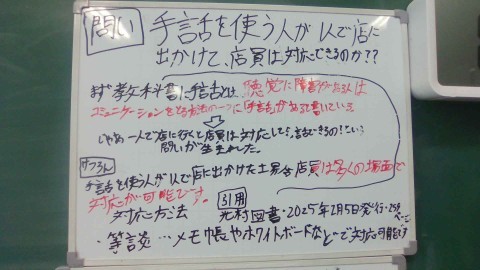 問い 手話を使う人が1人で店に
出かけて、店員は対応できるのか??
まず教科書に手話とは、聴覚に障害がある人は
コミュニケーションをとる方法の一つに手話があると書いている
じゃあ一人で店に行くと店員は対応して、話できるの!という
問いが生まれた。
けつろん
手話を使う人が1人で店に出かけた場合店員は多くの場面で
対応が可能です。
対応方法
引用
光村図書・2025年2月5日発行・259ページ
・筆談…メモ帳やホワイトボードなどで対応可能です